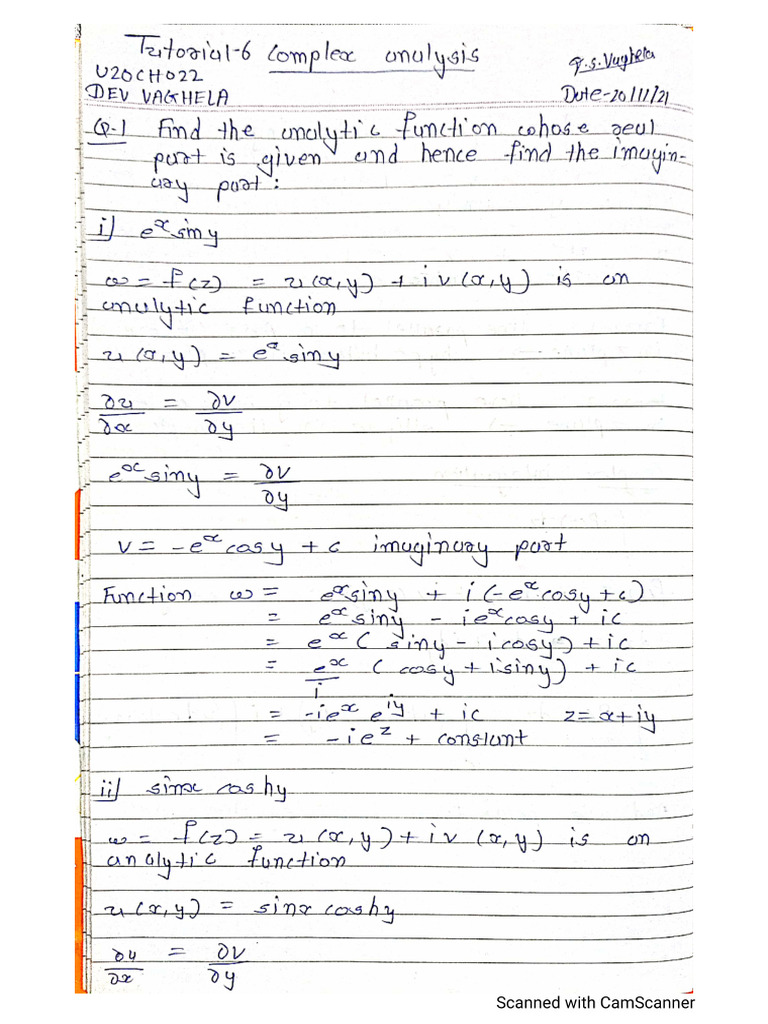 Tutorial-6 Complex analysis
U20CH022
D.S.Vaghela
DEV VAGHELA
Date-20/11/21
Q.1 Find the analytic function whose real
part is given and hence find the imagin-
ary part :
i) eˣ siny
w = f(z) = u(x,y) + i v(x,y) is an
analytic function
u(x,y) = eˣ siny
∂u/∂x = ∂v/∂y
eˣ siny = ∂v/∂y
v = -eˣ cosy + c imaginary part
Function w = eˣsiny + i(-eˣcosy + c)
= eˣsiny - ieˣcosy + ic
= eˣ( siny - icosy) + ic
= eˣ/i ( cosy + isiny) + ic
= -ieˣ e^iy + ic z = x+iy
= -ie^z + constant
ii) sinx coshy
w = f(z) = u(x,y) + i v(x,y) is an
analytic function
u(x,y) = sinx coshy
∂u/∂x = ∂v/∂y
Scanned with CamScanner